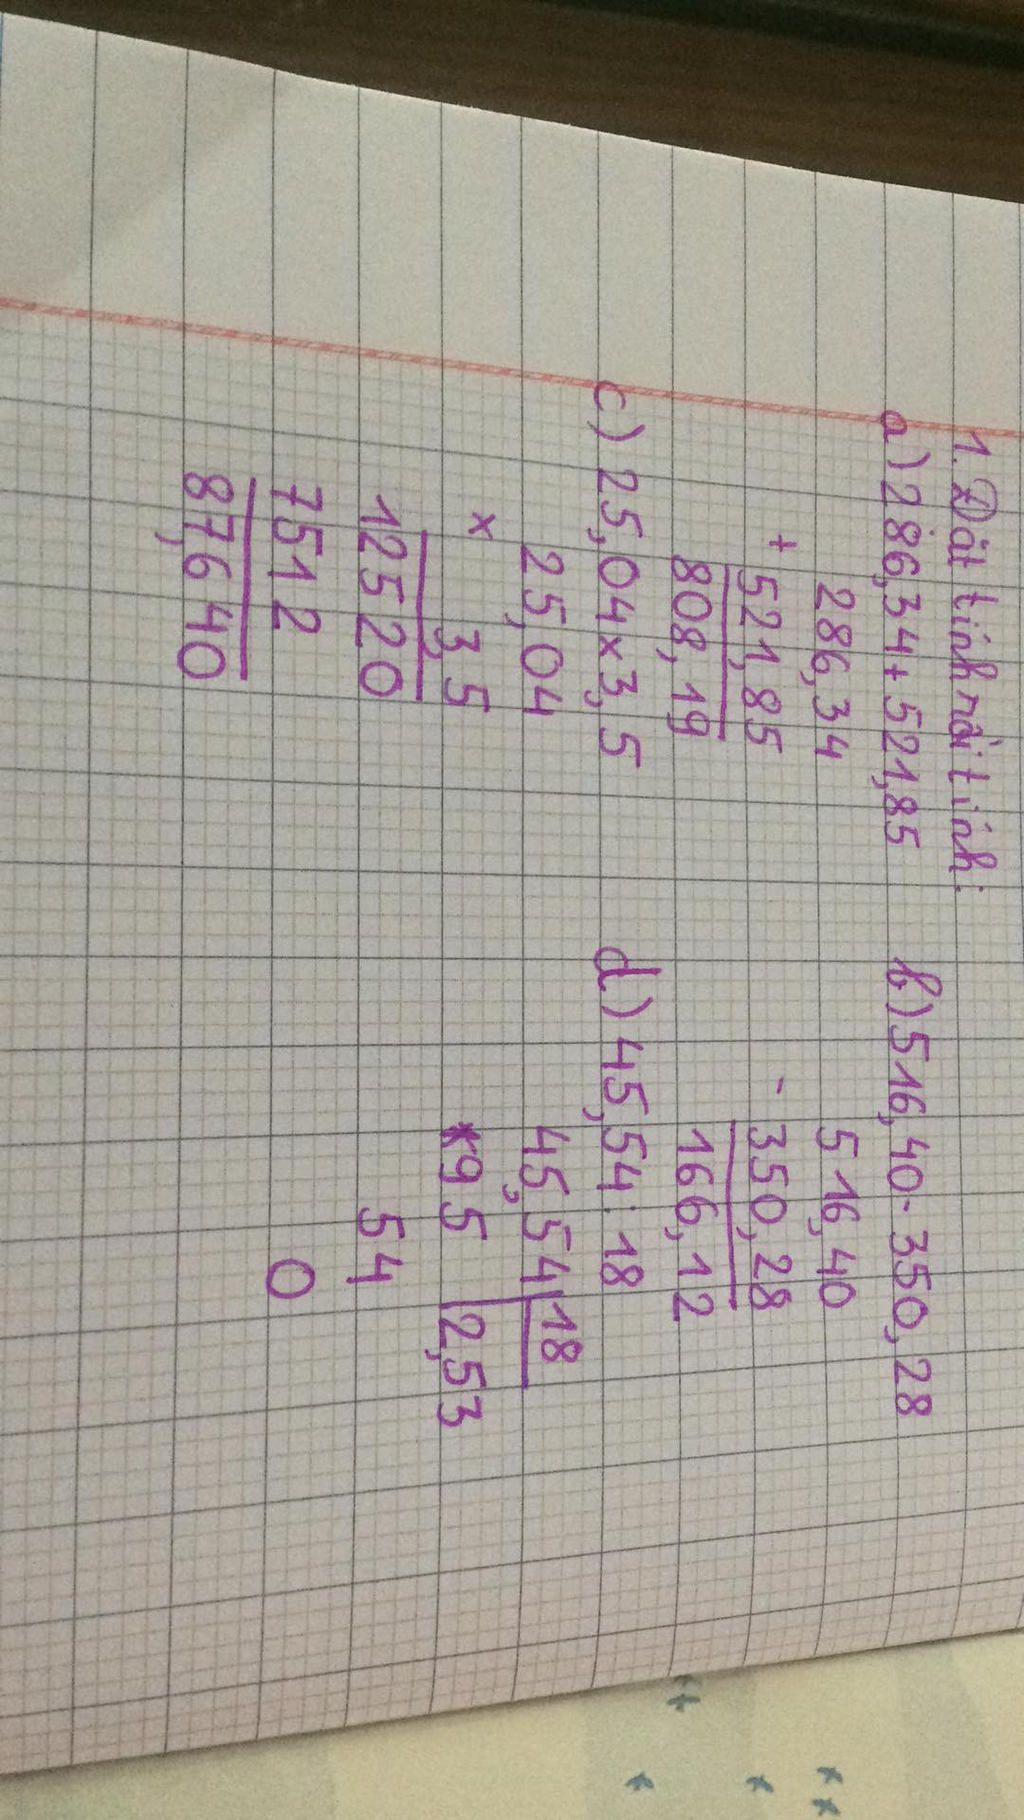 1. Đặt tính rồi tính:
a) 286,34 + 521,85
286,34
+
521,85
808,19
b) 516,40 - 350,28
516,40
-
350,28
166,12
c) 25,04 x 3,5
25,04
x
3,5
12520
7512
87,640
d) 45,54 : 18
45,54 18
95 2,53
54
0